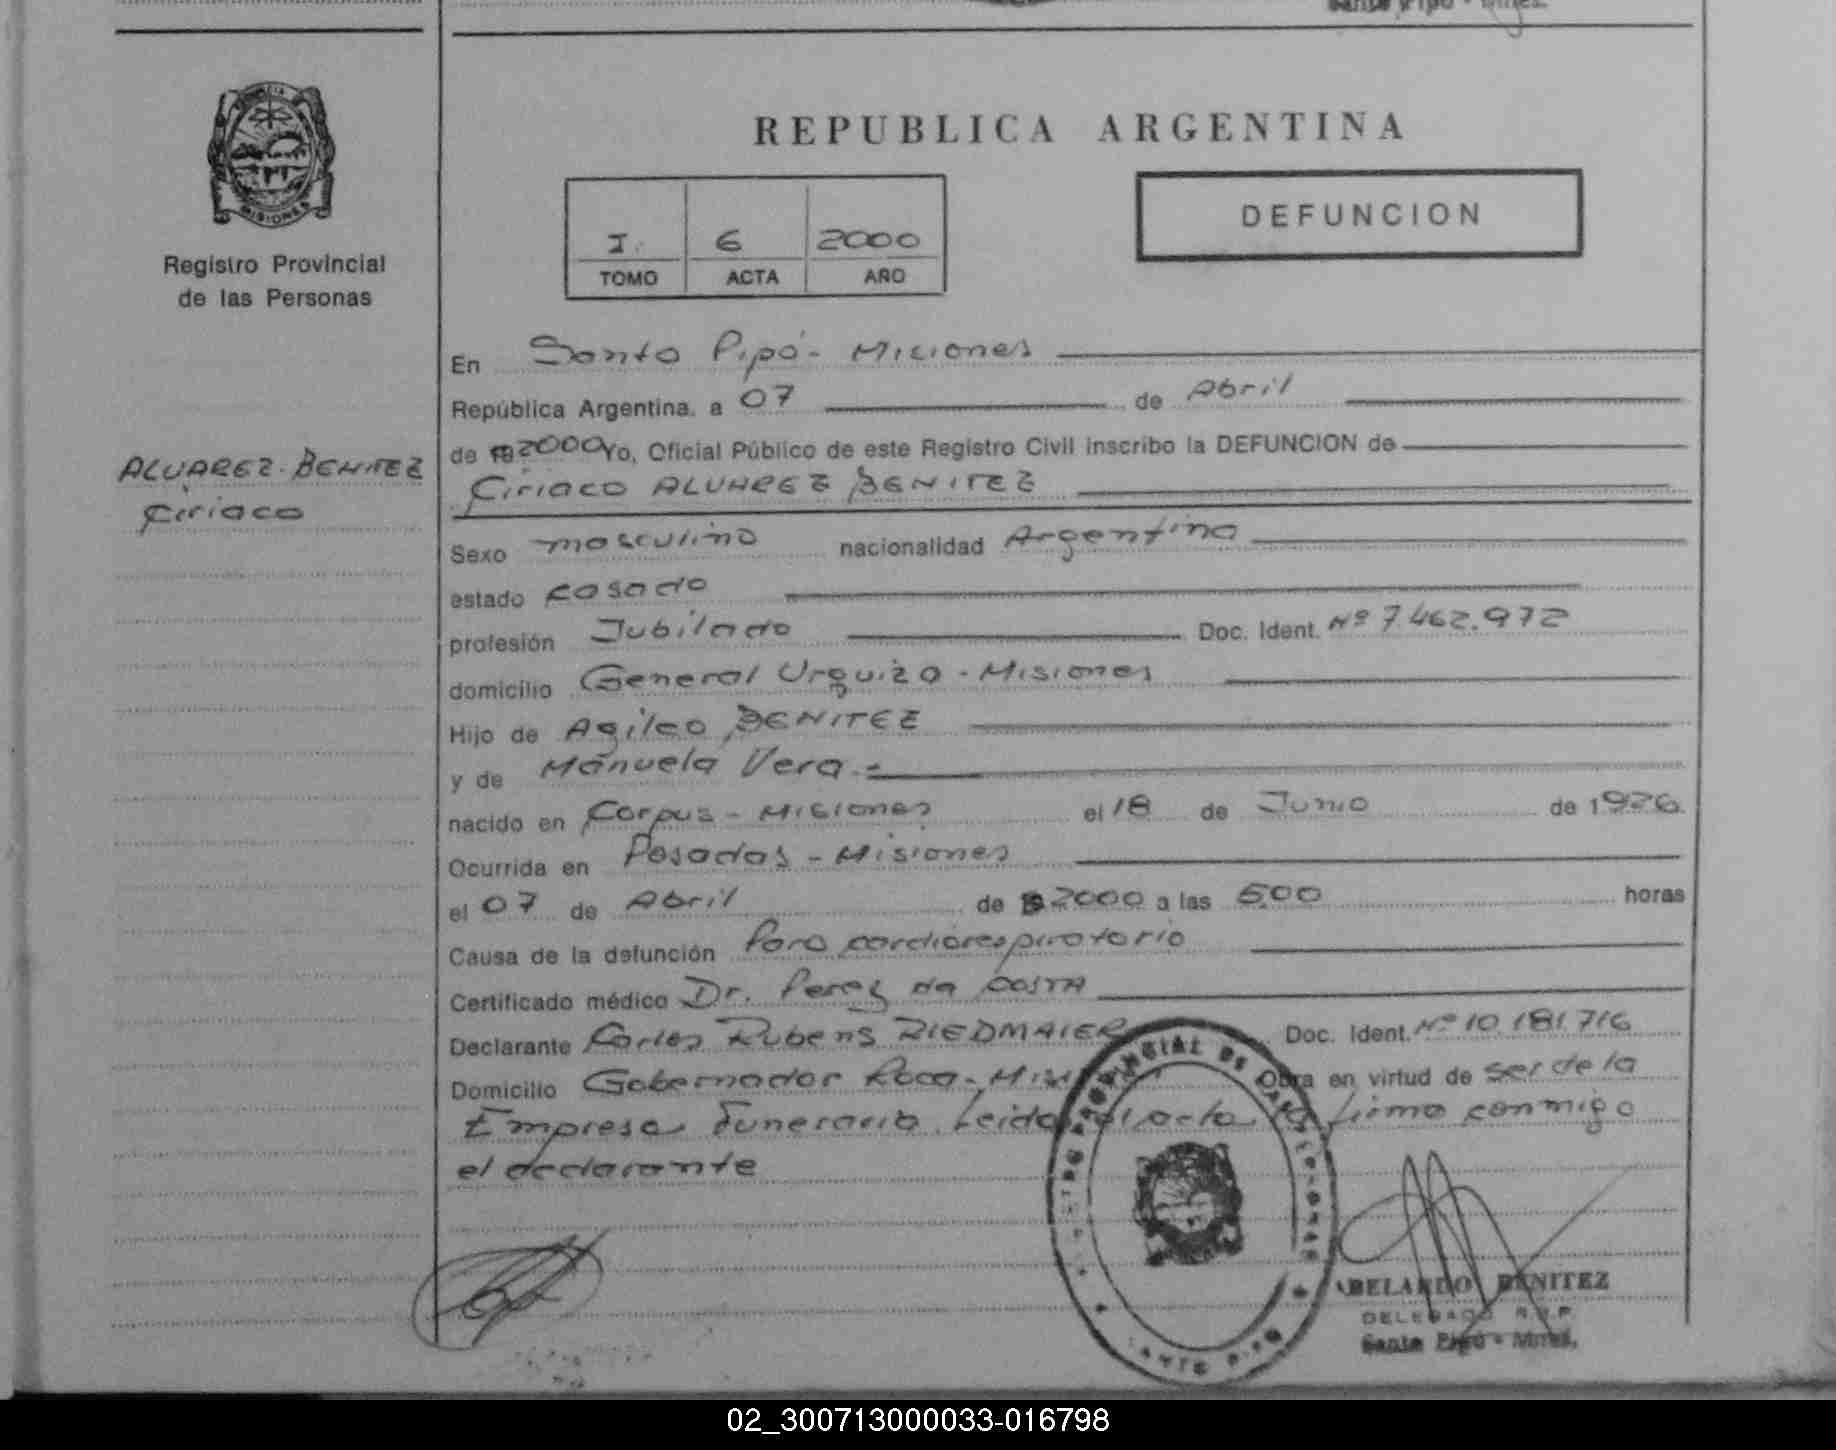 REPUBLICA ARGENTINA
MISIONES
Registro Provincial
de las Personas
I. 6 2000
TOMO ACTA AÑO
DEFUNCION
ALVAREZ BENITEZ
Ciriaco
En Santo Pipó - Misiones
República Argentina, a 07 de Abril
de 2000 Yo, Oficial Público de este Registro Civil inscribo la DEFUNCION de
Ciriaco ALVAREZ BENITEZ
Sexo masculino nacionalidad Argentina
estado casado
profesión Jubilado Doc. Ident. Nº 7.462.972
domicilio General Urquiza - Misiones
Hijo de Agileo BENITEZ
y de Manuela Vera.-
nacido en Corpus - Misiones el 18 de Junio de 1926.
Ocurrida en Posadas - Misiones
el 07 de Abril de 2000 a las 5.00 horas
Causa de la defunción Paro cardiorespiratorio
Certificado médico Dr. Perez da COSTA
Declarante Carlos Rubens RIEDMAIER Doc. Ident. Nº 10.181.716
Domicilio Gobernador Roca - Obra en virtud de ser de la
Empresa Funeraria. Leida el acta la firma conmigo
el declarante
SANTO PIPO
ABELARDO BENITEZ
DELEGADO R.P.P.
Santo Pipó - Mnes.
02_300713000033-016798